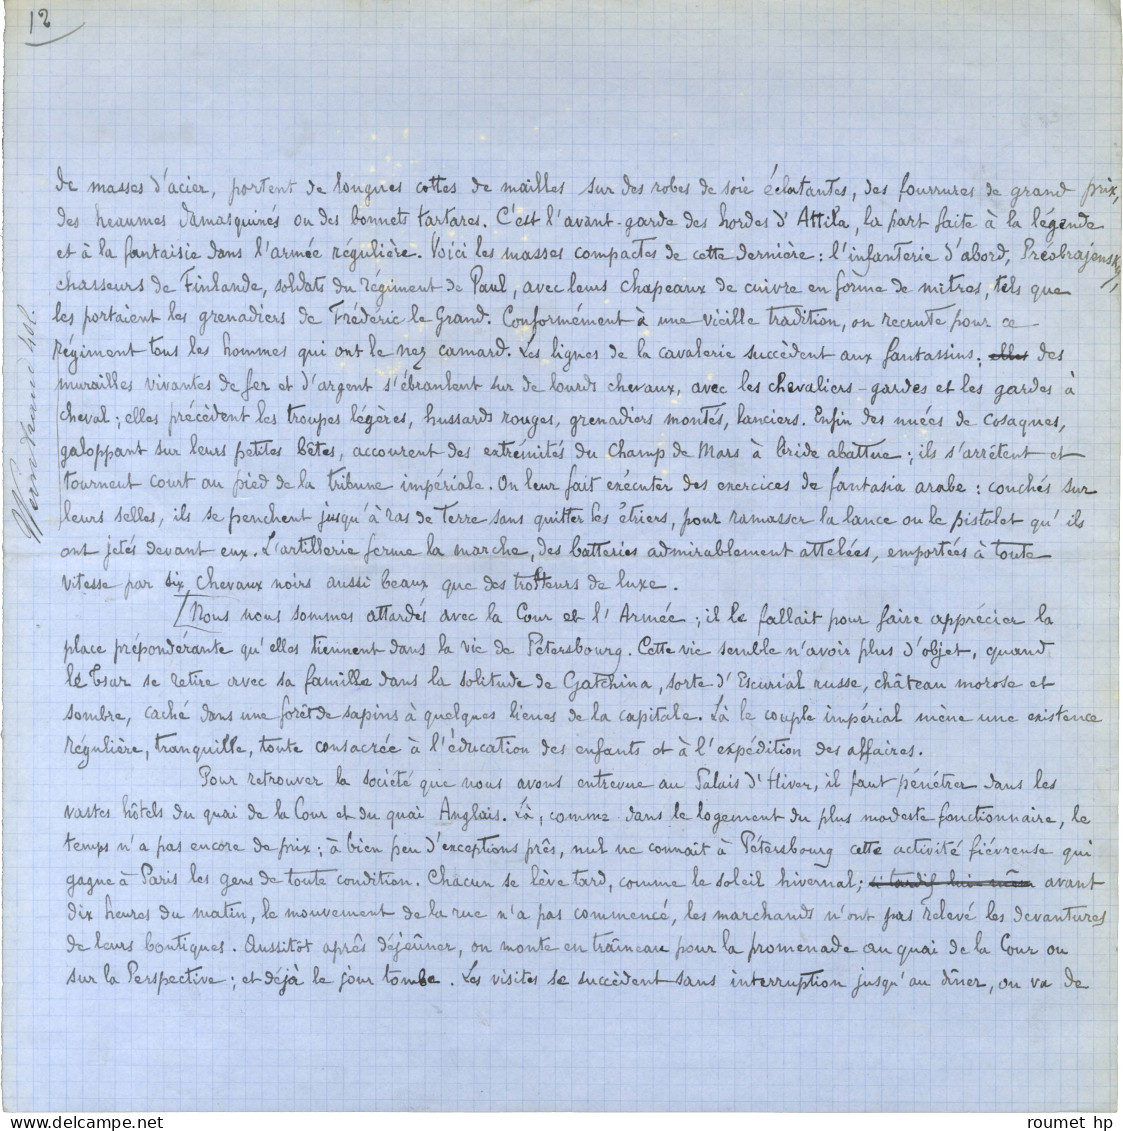 12
de masses d'acier, portent de longues cottes de mailles sur des robes de soie éclatantes, des fourrures de grand prix,
des heaumes damasquinés ou des bonnets tartares. C'est l'avant-garde des hordes d'Attila, la part faite à la légende
et à la fantaisie dans l'armée régulière. Voici les masses compactes de cette dernière : l'infanterie d'abord, Préobrajensky,
chasseurs de Finlande, soldats du régiment de Paul, avec leurs chapeaux de cuivre en forme de mitres, tels que
les portaient les grenadiers de Frédéric le Grand. Conformément à une vieille tradition, on recrute pour ce
régiment tous les hommes qui ont le nez camard. Les lignes de la cavalerie succèdent aux fantassins. elles des
murailles vivantes de fer et d'argent s'ébranlent sur de lourds chevaux, avec les chevaliers-gardes et les gardes à
cheval ; elles précèdent les troupes légères, hussards rouges, grenadiers montés, lanciers. Enfin des nuées de Cosaques,
galoppant sur leurs petites bêtes, accourent des extrémités du Champ de Mars à bride abattue ; ils s'arrêtent et
tournent court au pied de la tribune impériale. On leur fait exécuter des exercices de fantasia arabe : couchés sur
leurs selles, ils se penchent jusqu'à ras de terre sans quitter les étriers, pour ramasser la lance ou le pistolet qu'ils
ont jetés devant eux. L'artillerie ferme la marche, des batteries admirablement attelées, emportées à toute
vitesse par six chevaux noirs aussi beaux que des trotteurs de luxe.
[Nous nous sommes attardés avec la Cour et l'Armée ; il le fallait pour faire apprécier la
place prépondérante qu'elles tiennent dans la vie de Pétersbourg. Cette vie semble n'avoir plus d'objet, quand
le Tsar se retire avec sa famille dans la solitude de Gatchina, sorte d'Escurial russe, château morose et
sombre, caché dans une forêt de sapins à quelques lieues de la capitale. Là le couple impérial mène une existence
régulière, tranquille, toute consacrée à l'éducation des enfants et à l'expédition des affaires.
Pour retrouver la société que nous avons entrevue au Palais d'Hiver, il faut pénétrer dans les
vastes hôtels du quai de la Cour et du quai Anglais. Là, comme dans le logement du plus modeste fonctionnaire, le
temps n'a pas encore de prix ; à bien peu d'exceptions près, nul ne connaît à Pétersbourg cette activité fiévreuse qui
gagne à Paris les gens de toute condition. Chacun se lève tard, comme le soleil hivernal ; si tardif lui-même avant
dix heures du matin, le mouvement de la rue n'a pas commencé, les marchands n'ont pas relevé les devantures
de leurs boutiques. Aussitôt après déjeûner, on monte en traîneau pour la promenade au quai de la Cour ou
sur la Perspective ; et déjà le jour tombe. Les visites se succèdent sans interruption jusqu'au dîner, on va de
roumet hp
www.delcampe.net